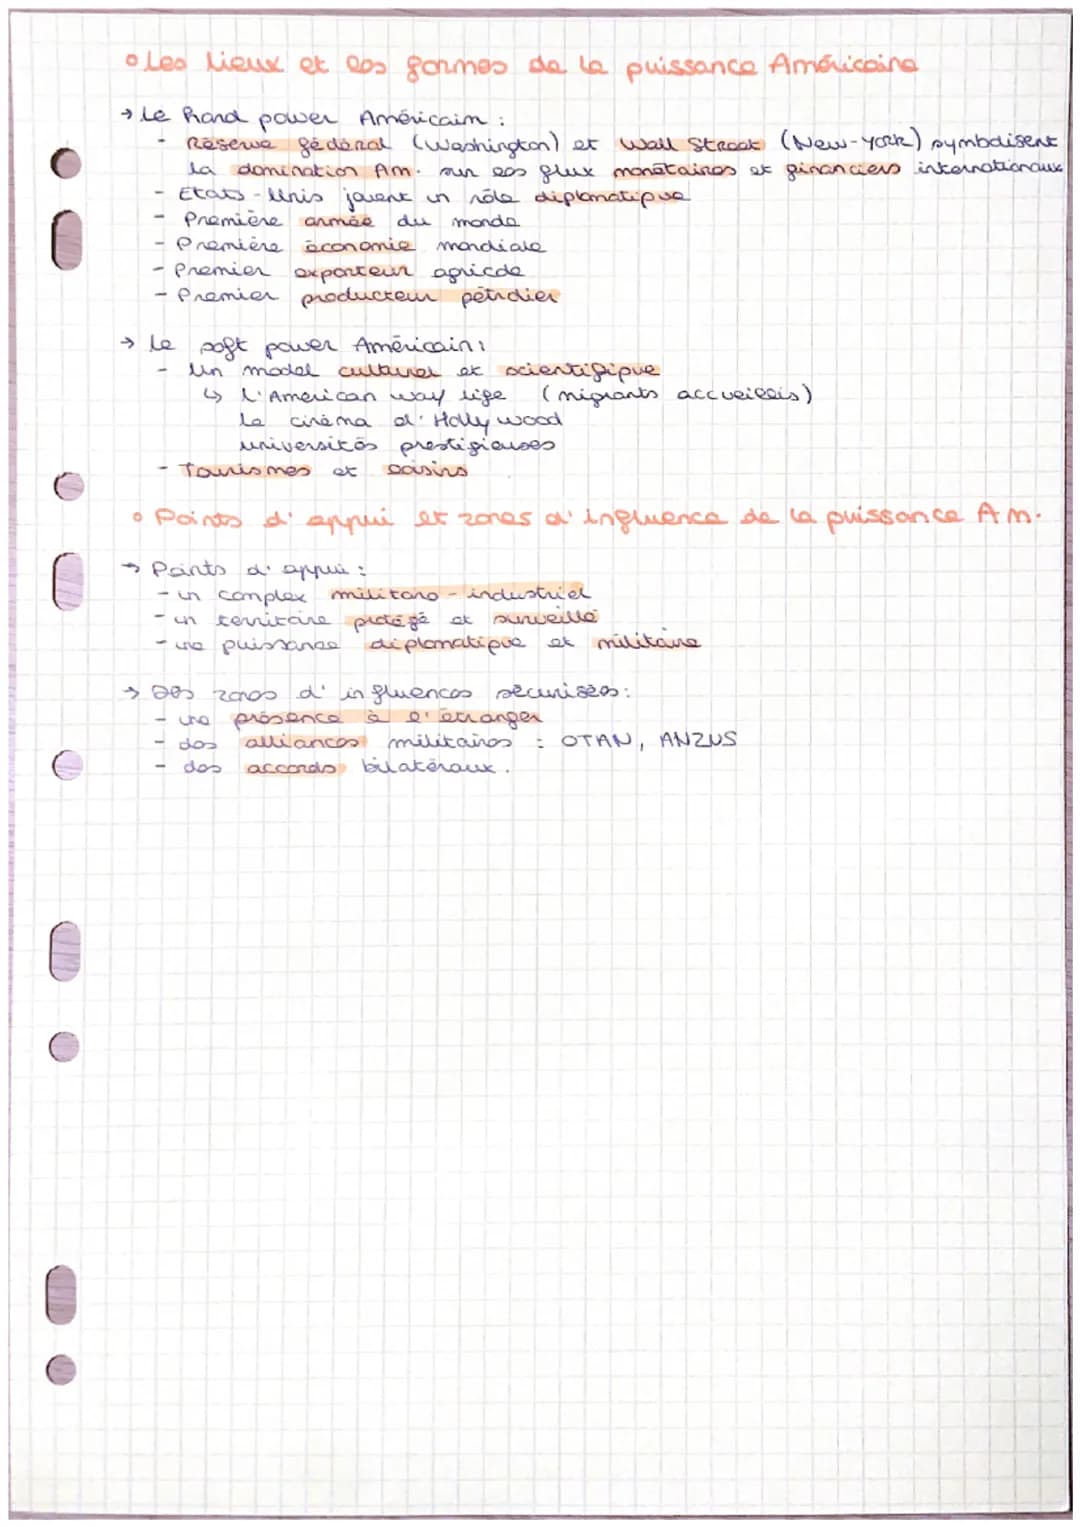 • Les lieux et les formes de la puissance Américaine
→ Le hard power Américain :
- Réserve fédéral (Washington) et Wall Street (New-York) symbolisent
la domination Am. sur les flux monétaires et financiers internationaux
- Etats-Unis jouent un rôle diplomatique
- Première armée du monde
- Première économie mondiale
- Premier exporteur agricole
- Premier producteur pétrolier
→ Le soft power Américain :
- Un model culturel et scientifique
↳ L'American way life (migrants accueillis)
Le cinéma d'Hollywood
universités prestigieuses
- Tourismes et loisirs
• Points d'appui et zones d'influence de la puissance Am.
→ Points d'appui :
- un complex militaro-industriel
- un territoire protégé et surveillé
- une puissance diplomatique et militaire
→ Des zones d'influences sécurisées :
- une présence à l'étranger
- des alliances militaires : OTAN, ANZUS
- des accords bilatéraux.